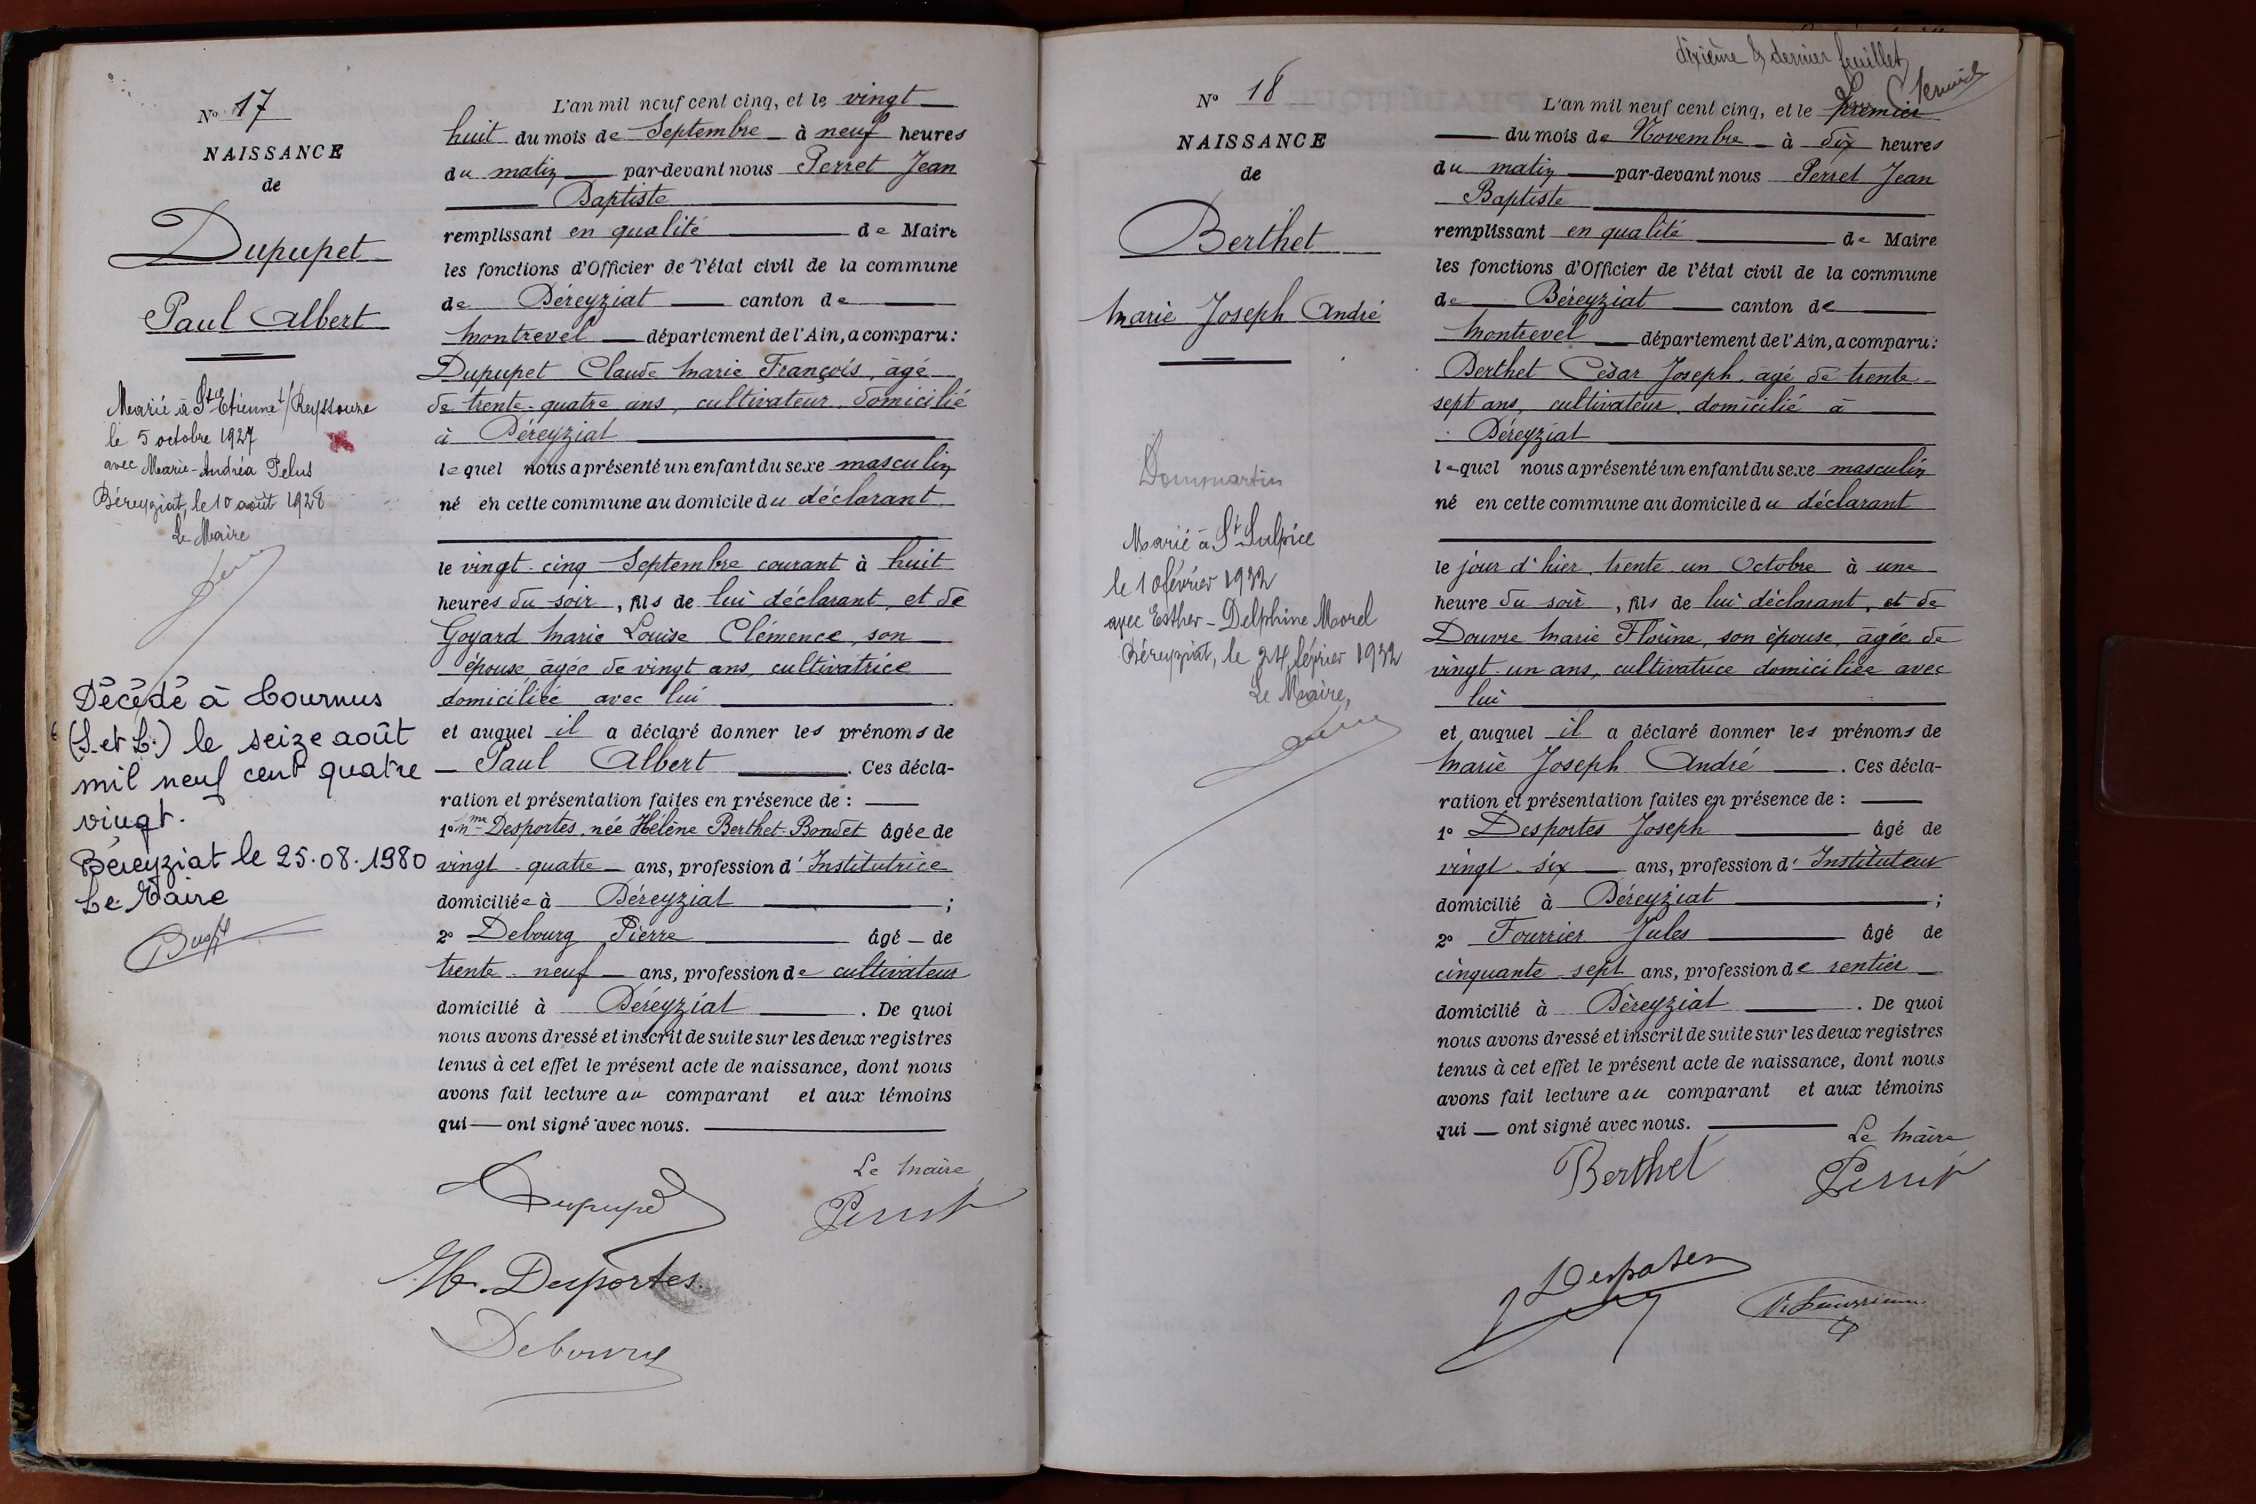 N° 17
NAISSANCE
de
Dupupet
Paul Albert
Marié à St Etienne s/ Reyssouze
le 5 octobre 1927
avec Marie-Andréa Pelus
Béreyziat, le 10 août 1928
Le Maire
Décédé à Tournus
(S. et L.) le seize août
mil neuf cent quatre
vingt.
Béreyziat le 25.08.1980
Le Maire
L'an mil neuf cent cinq, et le vingt
huit du mois de Septembre à neuf heures
du matin par-devant nous Perret Jean
Baptiste
remplissant en qualité de Maire
les fonctions d'Officier de l'état civil de la commune
de Béreyziat canton de
Montrevel département de l'Ain, a comparu:
Dupupet Claude Marie François, âgé
de trente-quatre ans, cultivateur, domicilié
à Béreyziat
lequel nous a présenté un enfant du sexe masculin
né en cette commune au domicile du déclarant
le vingt-cinq Septembre courant à huit
heures du soir, fils de lui déclarant, et de
Goyard Marie Louise Clémence, son
épouse, âgée de vingt ans, cultivatrice
domiciliée avec lui
et auquel il a déclaré donner les prénoms de
Paul Albert. Ces décla-
ration et présentation faites en présence de:
1° Mme Desportes, née Hélène Berthet-Bondet âgée de
vingt-quatre ans, profession d'Institutrice
domiciliée à Béreyziat;
2° Debourg Pierre âgé de
trente-neuf ans, profession de cultivateur
domicilié à Béreyziat. De quoi
nous avons dressé et inscrit de suite sur les deux registres
tenus à cet effet le présent acte de naissance, dont nous
avons fait lecture au comparant et aux témoins
qui ont signé avec nous.
Le Maire
Dupupet
Perret
H. Desportes
Debourg
dixième & dernier feuillet
N° 18
NAISSANCE
de
Berthet
Marie Joseph André
Dommartin
Marié à St Sulpice
le 10 février 1932
avec Esther-Delphine Morel
Béreyziat, le 24 février 1932
Le Maire,
L'an mil neuf cent cinq, et le premier
du mois de Novembre à dix heures
du matin par-devant nous Perret Jean
Baptiste
remplissant en qualité de Maire
les fonctions d'Officier de l'état civil de la commune
de Béreyziat canton de
Montrevel département de l'Ain, a comparu:
Berthet César Joseph, âgé de trente-
sept ans, cultivateur, domicilié à
Béreyziat
lequel nous a présenté un enfant du sexe masculin
né en cette commune au domicile du déclarant
le jour d'hier, trente-un Octobre à une
heure du soir, fils de lui déclarant, et de
Douvre Marie Florine, son épouse, âgée de
vingt-un ans, cultivatrice domiciliée avec
lui
et auquel il a déclaré donner les prénoms de
Marie Joseph André. Ces décla-
ration et présentation faites en présence de:
1° Desportes Joseph âgé de
vingt-six ans, profession d'Instituteur
domicilié à Béreyziat;
2° Fourrier Jules âgé de
cinquante-sept ans, profession de rentier
domicilié à Béreyziat. De quoi
nous avons dressé et inscrit de suite sur les deux registres
tenus à cet effet le présent acte de naissance, dont nous
avons fait lecture au comparant et aux témoins
qui ont signé avec nous.
Le Maire
Berthet
Perret
J Desportes